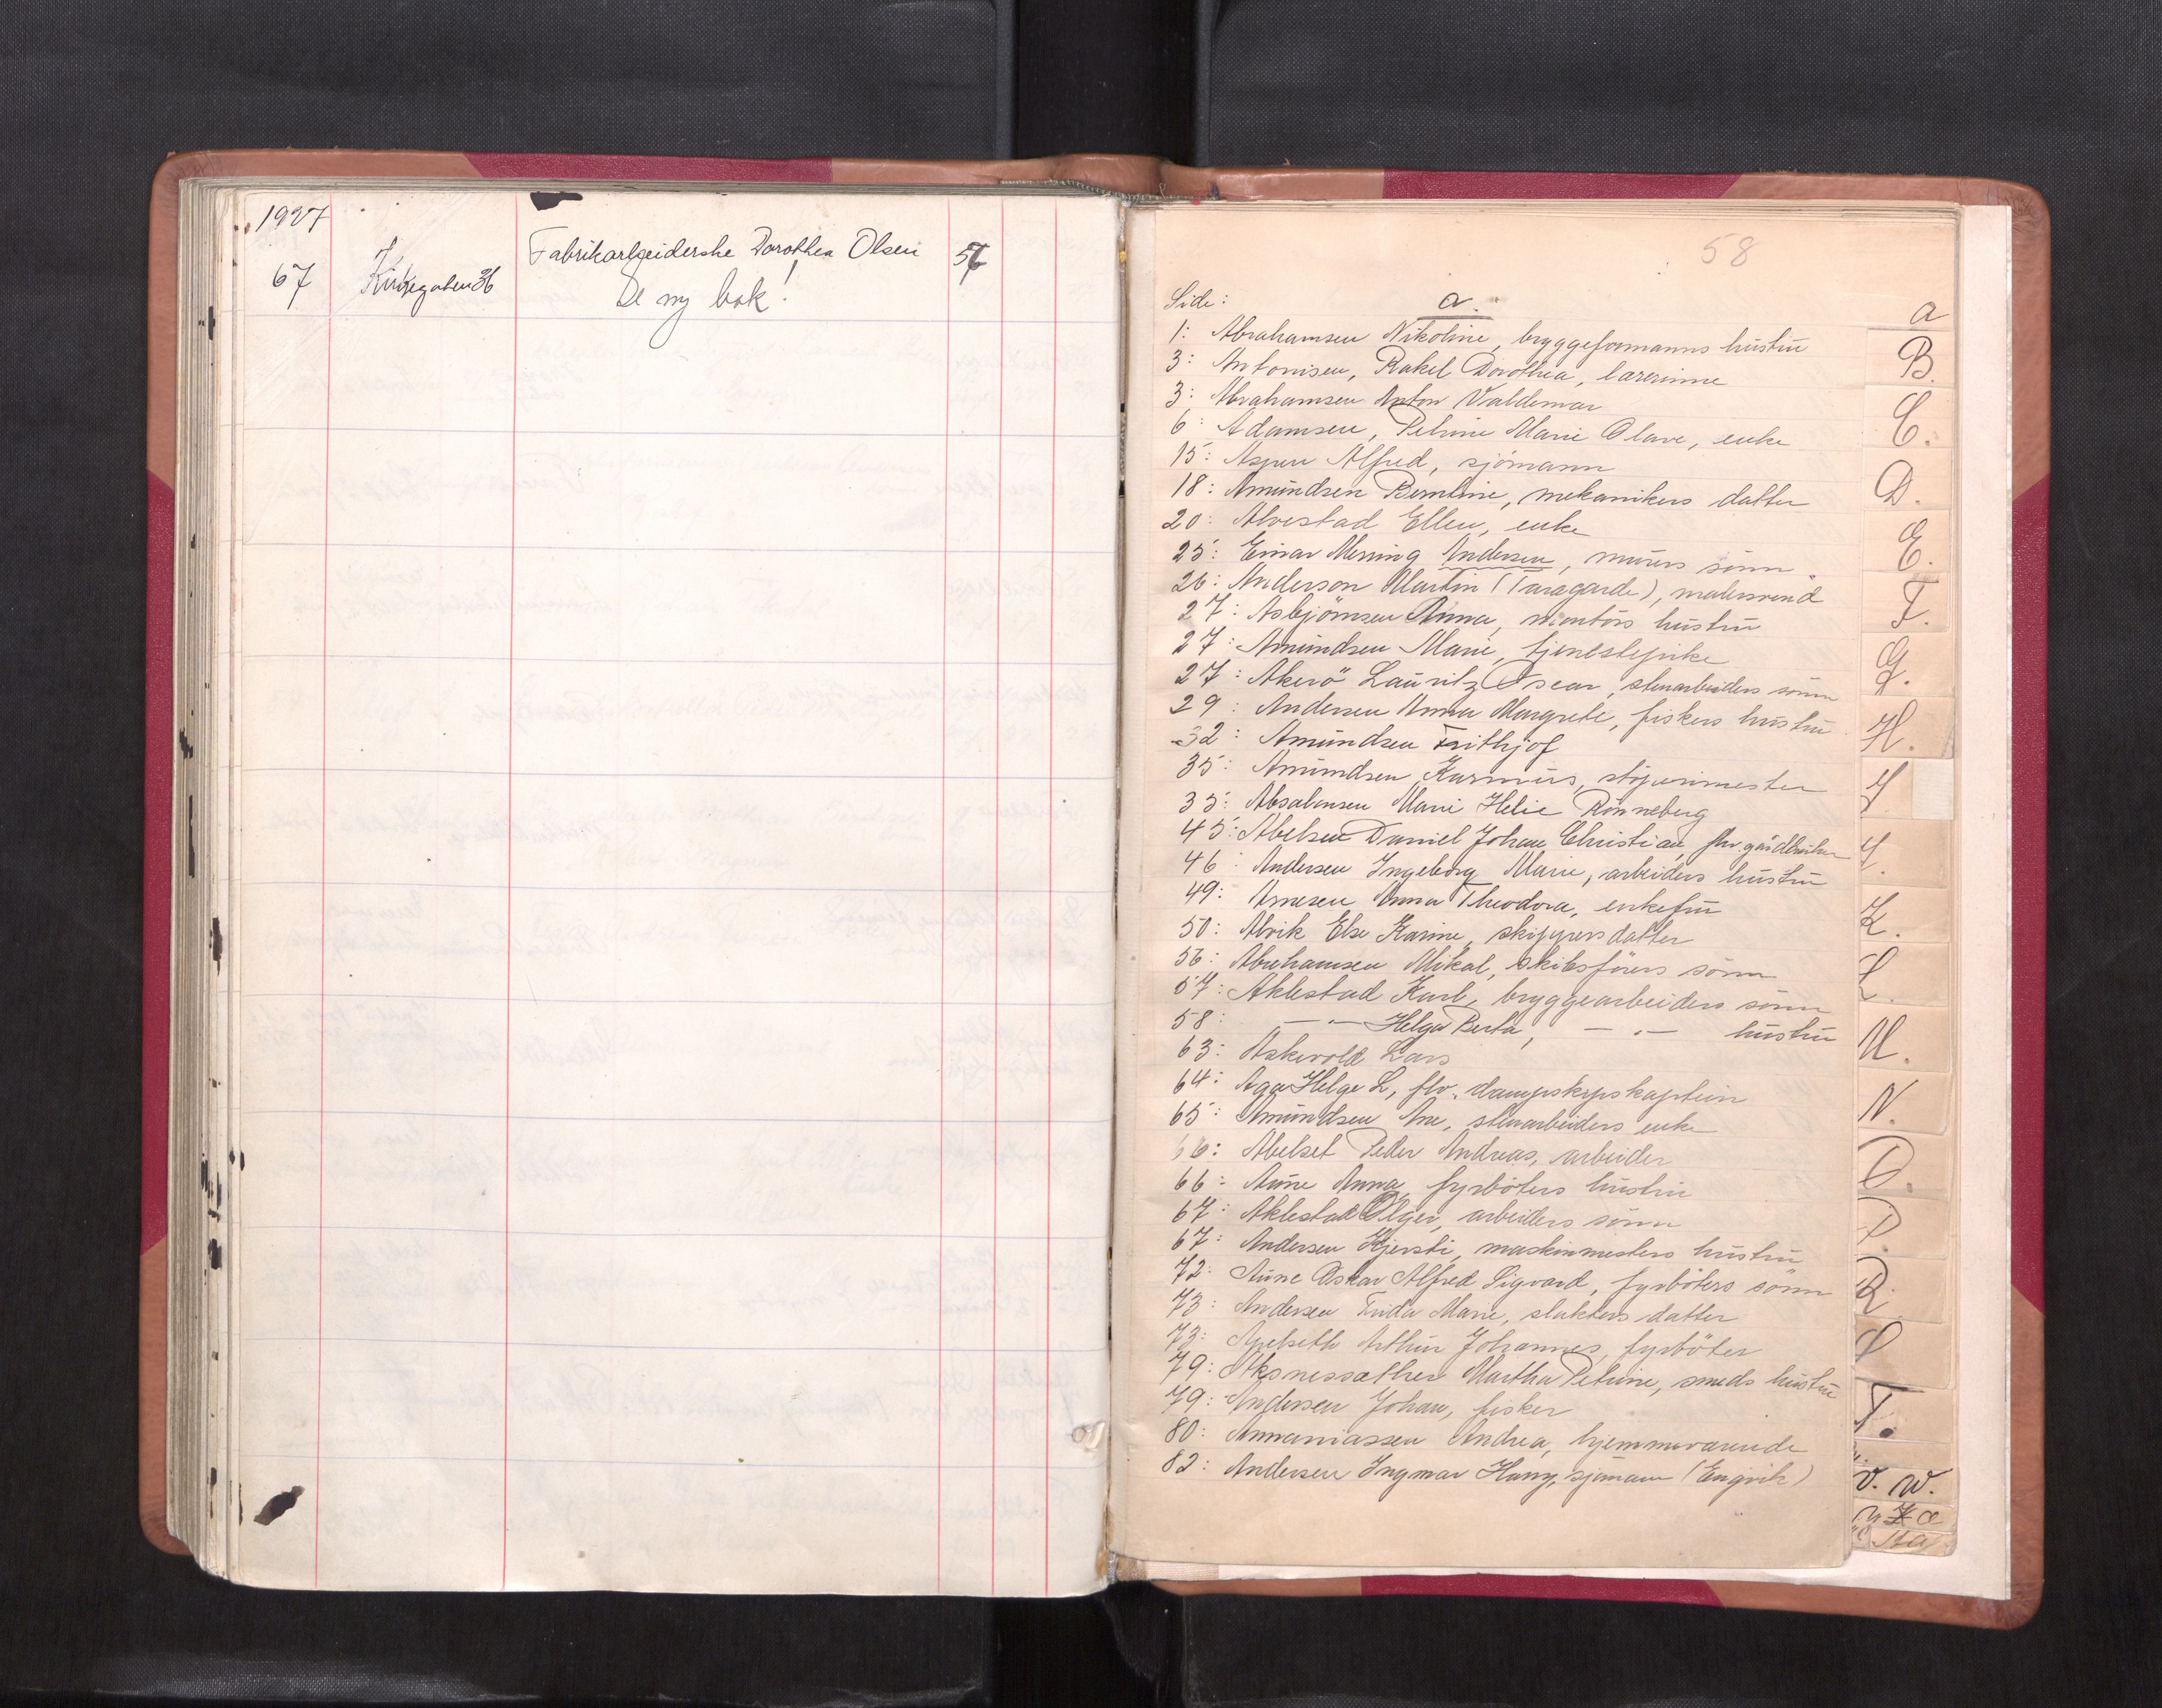 1927
67 Kirkegaten 36 Fabrikarbeiderske Dorothea Olsen 57
Se ny bok!
58
Side: a.
1: Abrahamsen Nikoline, bryggeformanns hustru
3: Antonisen, Rakel Dorothea, lærerinne
3: Abrahamsen Anton Valdemar
6: Adamsen, Petrine Marie Olave, enke
15: Aspen Alfred, sjömann
18: Amundsen Berntine, mekanikers datter
20: Alvestad Ellen, enke
25: Einar Messing Andersen, murers sönn
26: Anderson Martin (Taragarde), malersvend
27: Asbjörnsen Anna, montörs hustru
27: Amundsen Marie, tjenestepike
27: Akerö Lauritz Oscar, stenarbeiders sönn
29: Andersen Anna Margrete, fiskers hustru
32: Amundsen Frithjof
35: Amundsen Rasmus, stöperimester
35: Absalonsen Marie Helie Rönneberg
45: Abelsen Daniel Johan Christian, fhv. gårdbruker
46: Andersen Ingeborg Marie, arbeiders hustru
49: Arnesen Anna Theodora, enkefru
50: Alvik Else Karine, skippers datter
56: Abrahamsen Mikal, skibsförers sönn
57: Aklestad Karl, bryggearbeiders sönn
58: —"— Helga Berta, —"— hustru
63: Askevold Lars
64: Aga Helge L, fhv. dampskipskaptein
65: Amundsen Ane, stenarbeiders enke
66: Abelset Peder Andreas, arbeider
66: Aune Anna, fyrböters hustru
67: Aklestad Olger, arbeiders sönn
67: Andersen Kjersti, maskinmesters hustru
72: Aune Oskar Alfred Sigvard, fyrböters sönn
73: Andersen Frida Marie, slakters datter
73: Apelseth Arthur Johannes, fyrböter
79: Aksnessæther Martha Petrine, smeds hustru
79: Andersen Johan, fisker
80: Annaniassen Andrea, hjemmeværende
82: Andersen Ingmar Harry, sjömann (Engvik)
a
B.
C.
D.
E.
F.
G.
H.
I
J.
K.
L.
M.
N.
O.
P.
R.
S
T.
V. W.